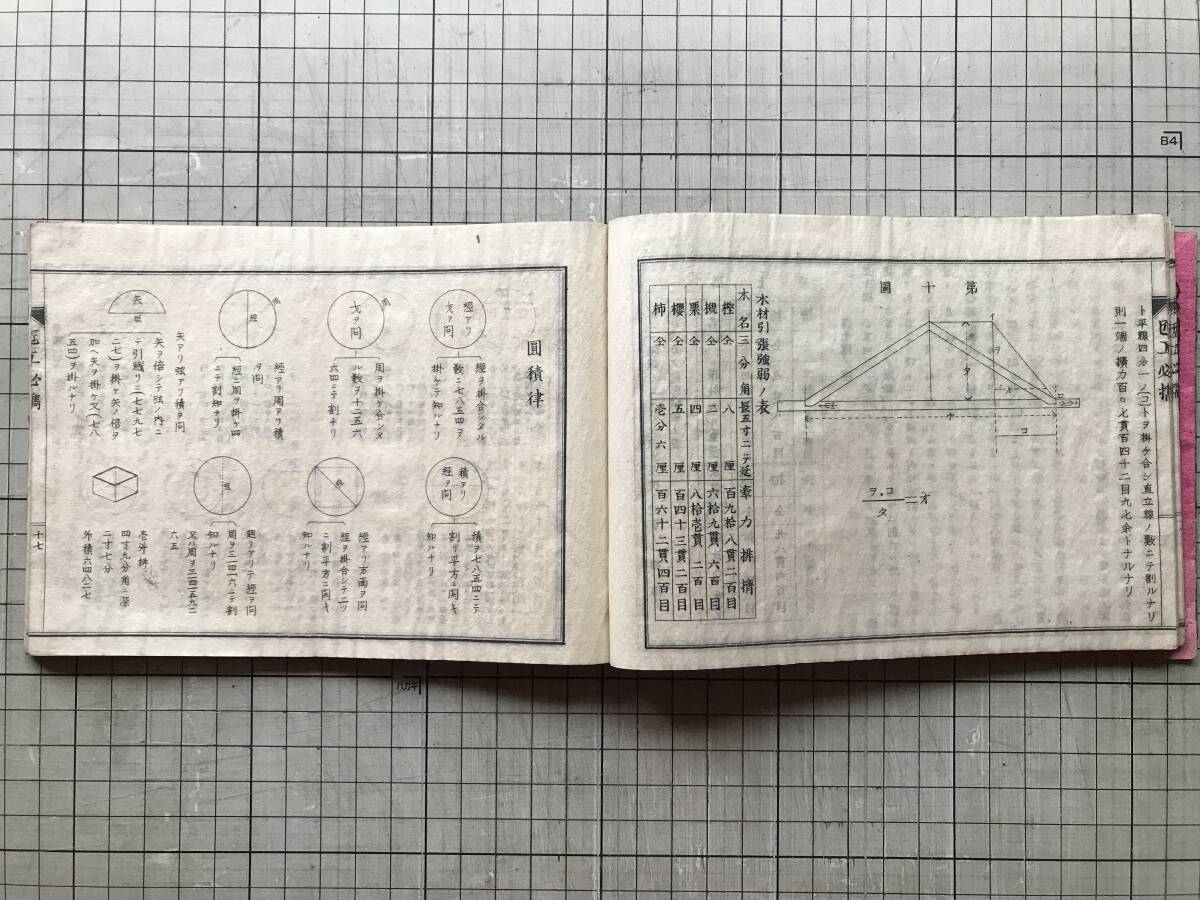 ト平線四分一ノ(コ)トヲ掛ケ合シ直立線ノ數ニテ割ルナリ
則一端ノ擴力百〇七貫百四十二目九七余トナルナリ
第十圖
イ
ヲ
タ
コ
ヲ.コ
タ
木材引張強弱ノ表
木名 三分角長五寸ニテ延 牽力排擠
樫 仝 八厘 百九拾八貫二百目
槻 仝 二厘 六拾九貫六百目
栗 仝 四厘 八拾壱貫二百目
櫻 仝 五厘 百四十三貫二百目
柿 仝 壱分六厘 百六十二貫四百目
圓積律
經アリ
戈ヲ問
經ヲ掛合シタル
數ニ七八五四ヲ
掛ケテ知ルナリ
周
戈ヲ問
周ヲ掛ケ合シタ
ル數ヲ十二五六
六四ニテ割ナリ
周
經
經アリ周アリ積
ヲ問
經ニ周ヲ掛ケ四
ニテ割知ナリ
矢
弦
矢アリ弦アリ積ヲ問
矢ヲ倍シテ弦ノ内ニ
テ引殘リニ七七九七
二七)ヲ掛ケ矢ノ倍ヲ
加ヘ矢ヲ掛ケ又(七八
五四)ヲ掛ルナリ
積アリ
經ヲ問
積ヲ七八五四ニテ
割リ平方ニ開キ
知ルナリ
經アリ方面ヲ問
經ヲ掛合シテ二ツ
ニ割平方ニ開キ
知ルナリ
經
廻リアリテ經ヲ問
周ヲ三一四一六ニテ割
知ルナリ
又ハ周ヲ三一四一五九二
六五
壱升桝
四寸九分角ニ深
二寸七分
外積六四八二七
十七
B4
ハガキ